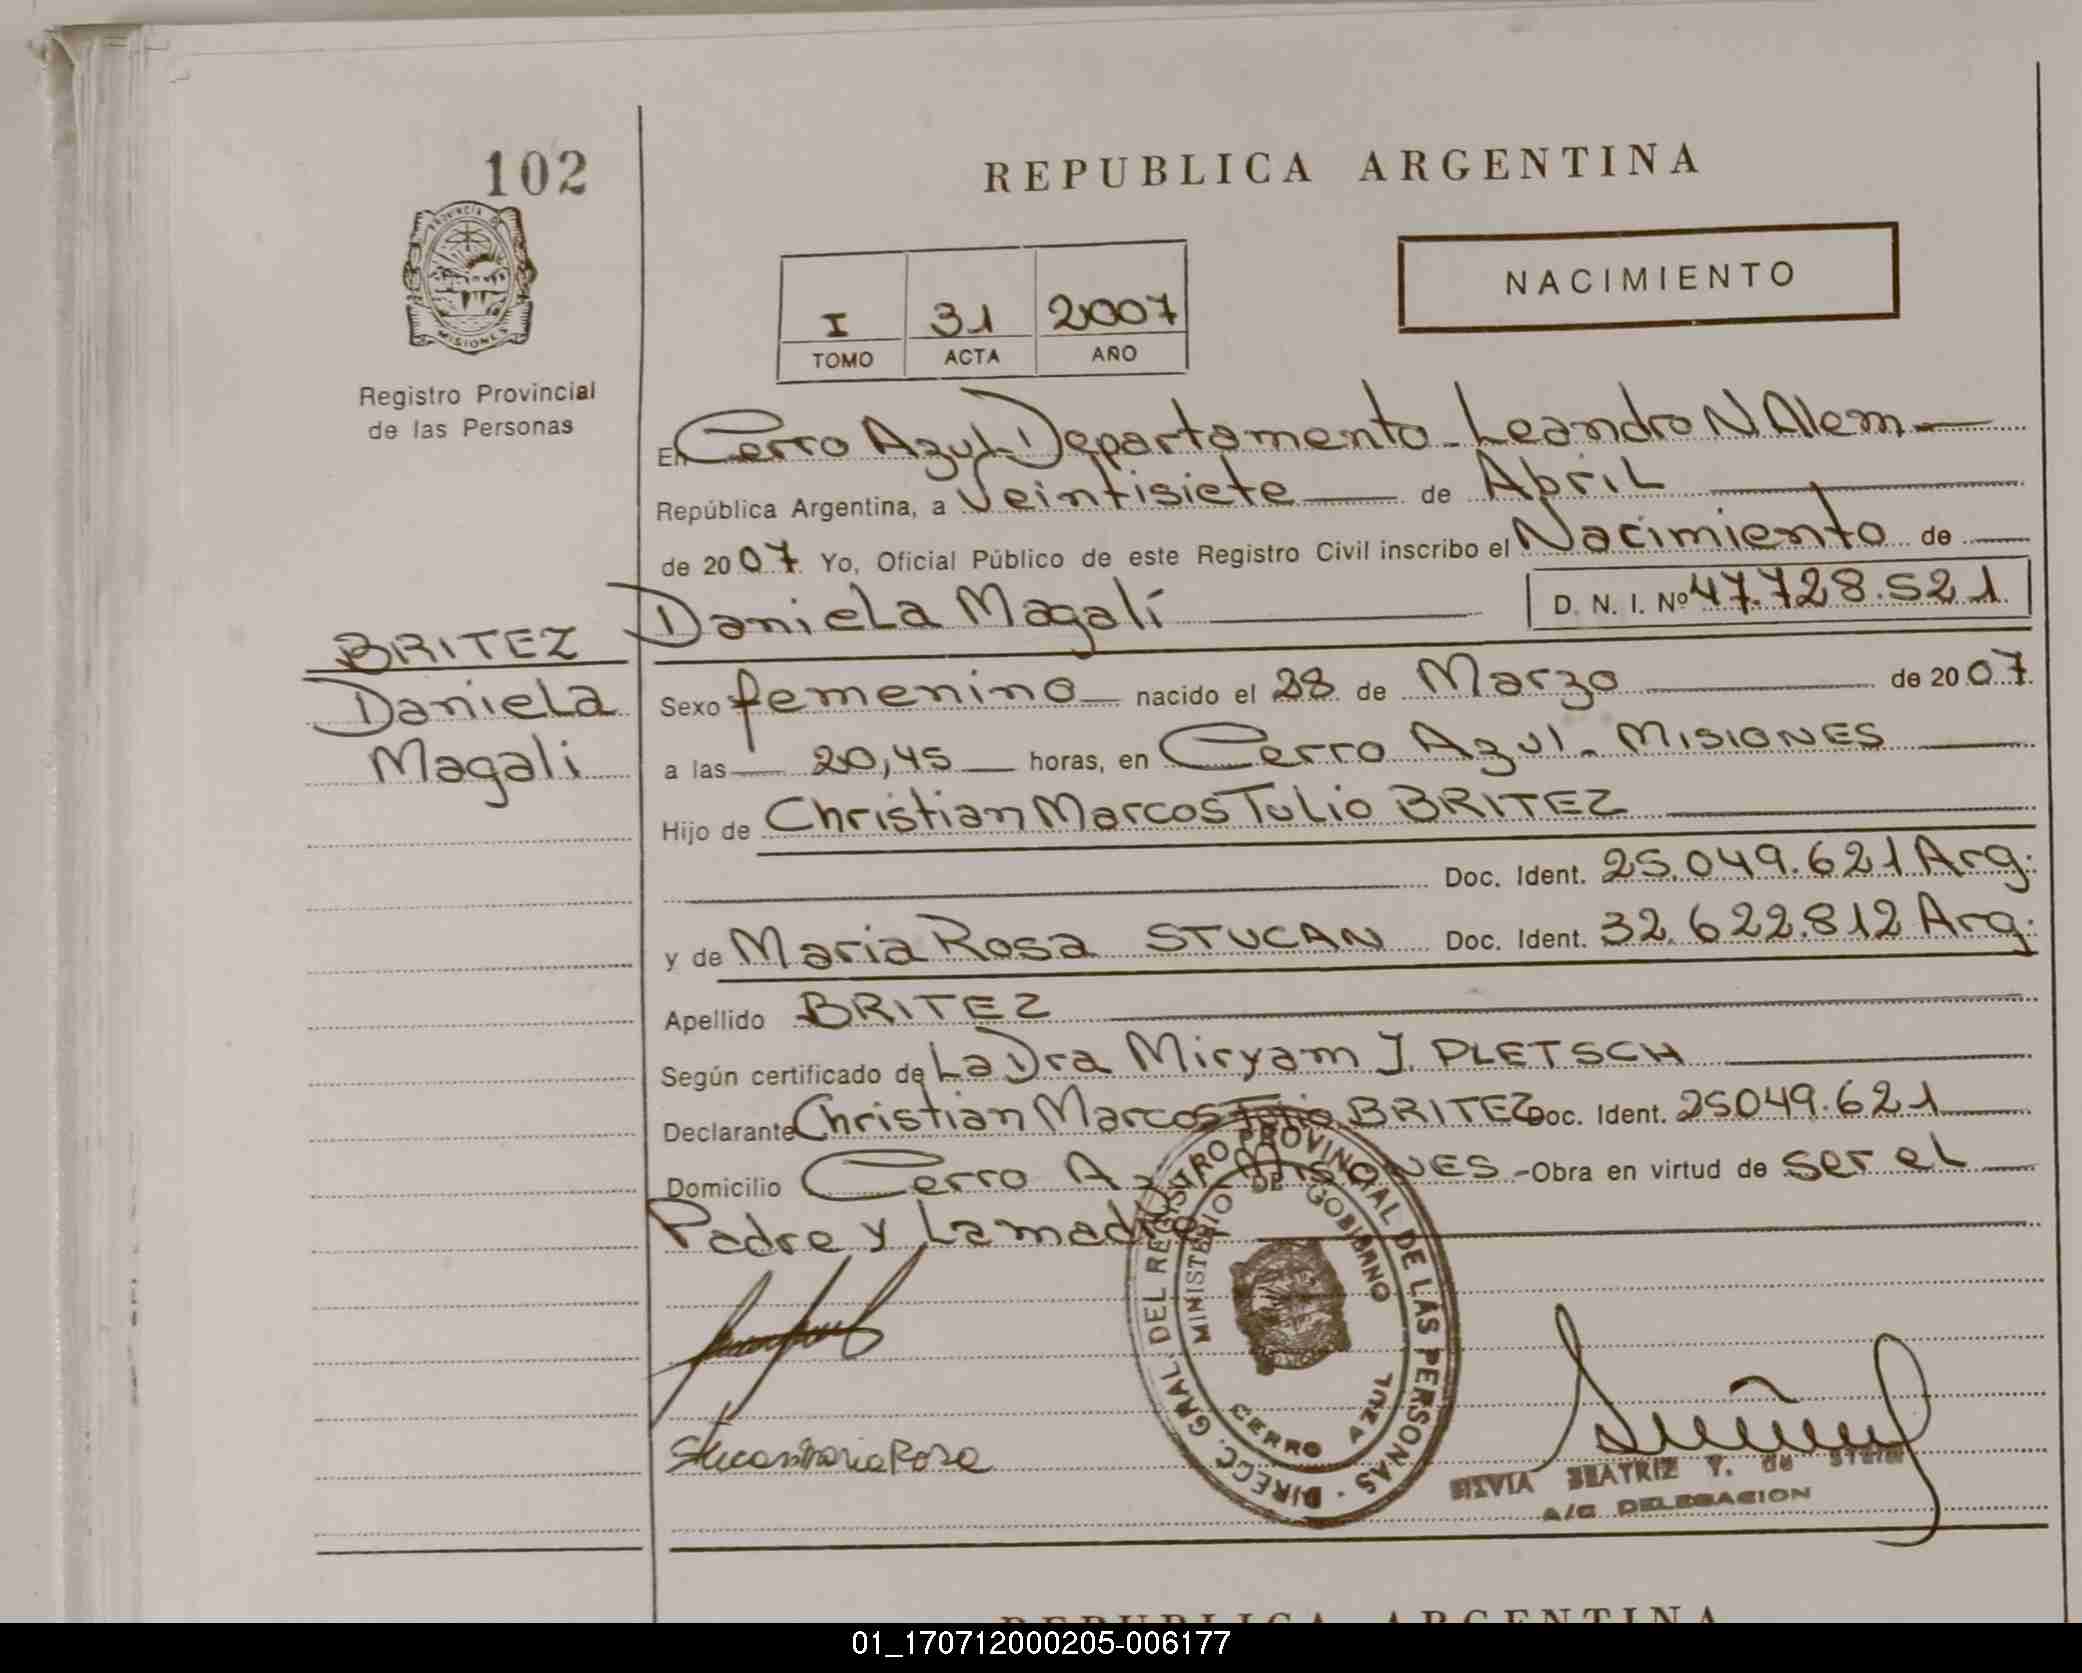 102
PROVINCIA DE
MISIONES
Registro Provincial
de las Personas
REPUBLICA ARGENTINA
NACIMIENTO
I 31 2007
TOMO ACTA AÑO
En Cerro Azul Departamento Leandro N Alem
República Argentina, a veintisiete de Abril
de 2007 Yo, Oficial Público de este Registro Civil inscribo el Nacimiento de
Daniela Magalí D. N. I. Nº 47.728.521
BRITEZ
Daniela
Magali
Sexo femenino nacido el 28 de Marzo de 2007
a las 20,45 horas, en Cerro Azul - MISIONES
Hijo de Christian Marcos Tulio BRITEZ
Doc. Ident. 25.049.621 Arg.
y de Maria Rosa STUCAN Doc. Ident. 32.622.812 Arg.
Apellido BRITEZ
Según certificado de La Dra Miryam J. PLETSCH
Declarante Christian Marcos Tulio BRITEZ Doc. Ident. 25049.621
Domicilio Cerro Azul MISIONES - Obra en virtud de ser el
Padre y La madre
DIRECC. GRAL. DEL REGISTRO PROVINCIAL DE LAS PERSONAS
MINISTERIO DE GOBIERNO
CERRO AZUL
Stucan Maria Rosa
SILVIA BEATRIZ Y. de
A/C DELEGACION
REPUBLICA ARGENTINA
01_170712000205-006177